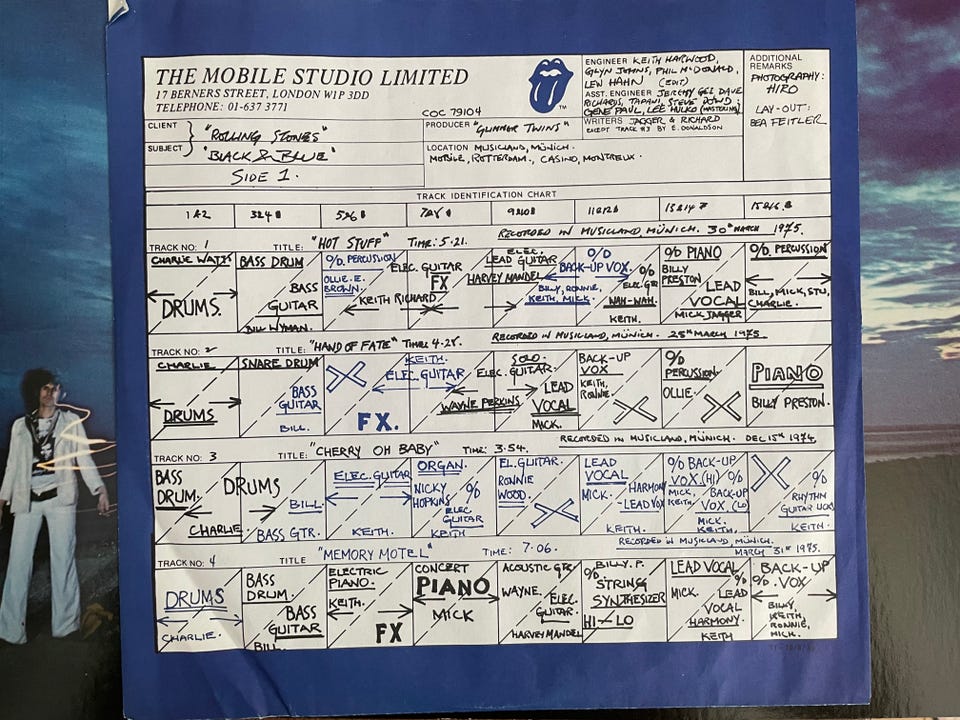 THE MOBILE STUDIO LIMITED
17 BERNERS STREET, LONDON W1P 3DD
TELEPHONE: 01-637 3771
COC 79104
TM
ENGINEER KEITH HARWOOD,
GLYN JOHNS, PHIL McDONALD,
LEW HAHN (EDIT)
ASST. ENGINEER JEREMY GEE DAVE
RICHARDS, TAPANI, STEVE DOWD;
GENE PAUL, LEE HULKO (MASTERING)
WRITERS JAGGER & RICHARD
EXCEPT TRACK #3 BY E. DONALDSON
ADDITIONAL
REMARKS
PHOTOGRAPHY:
HIRO
LAY-OUT:
BEA FEITLER
CLIENT "ROLLING STONES"
SUBJECT "BLACK & BLUE"
SIDE 1.
PRODUCER "GLIMMER TWINS"
LOCATION MUSICLAND, MÜNICH.
MOBILE, ROTTERDAM., CASINO, MONTREUX.
TRACK IDENTIFICATION CHART
1 & 2 3 & 4 5 & 6 7 & 8 9 & 10 11 & 12 13 & 14 15 & 16
RECORDED IN MUSICLAND, MÜNICH. 30th MARCH 1975.
TRACK NO: 1 TITLE: "HOT STUFF" TIME: 5.21.
CHARLIE WATTS
DRUMS.
BASS DRUM
BASS
GUITAR
BILL WYMAN.
% PERCUSSION
OLLIE. E.
BROWN.
ELEC. GUITAR
KEITH RICHARD
FX
ELEC.
LEAD GUITAR
HARVEY MANDEL
%
BACK-UP VOX.
BILLY, RONNIE,
KEITH, MICK.
%
ELEC. GTR
WAH-WAH.
KEITH.
% PIANO
BILLY
PRESTON
LEAD
VOCAL
MICK JAGGER
% PERCUSSION
BILL, MICK, STU,
CHARLIE.
RECORDED IN MUSICLAND, MÜNICH. 25th MARCH 1975
TRACK NO: 2 TITLE: "HAND OF FATE" TIME: 4.28.
CHARLIE
DRUMS
SNARE DRUM
BASS
GUITAR
BILL.
KEITH.
ELEC GUITAR
FX.
SOLO.
ELEC. GUITAR.
WAYNE PERKINS
LEAD
VOCAL
MICK.
BACK-UP
VOX
KEITH,
RONNIE.
%
PERCUSSION
OLLIE.
PIANO
BILLY PRESTON.
RECORDED IN MUSICLAND, MÜNICH. DEC 15th 1974
TRACK NO: 3 TITLE: "CHERRY OH BABY" TIME: 3.54.
BASS
DRUM.
DRUMS
CHARLIE
BILL
BASS GTR.
ELEC. GUITAR
KEITH.
ORGAN.
NICKY
HOPKINS
%
ELEC
GUITAR
KEITH
EL. GUITAR.
RONNIE
WOOD.
LEAD
VOCAL
MICK.
HARMONY
-LEAD VOX
KEITH.
% BACK-UP
VOX. (HI) %
MICK,
KEITH
BACK-UP
VOX (LO)
MICK.
KEITH.
%
RHYTHM
GUITAR
KEITH.
RECORDED IN MUSICLAND, MÜNICH.
MARCH 31st 1975.
TRACK NO: 4 TITLE "MEMORY MOTEL" TIME: 7.06.
DRUMS
CHARLIE.
BASS
DRUM.
BASS
GUITAR
BILL.
ELECTRIC
PIANO.
KEITH.
FX
CONCERT
PIANO
MICK
ACOUSTIC GTR.
WAYNE.
ELEC.
GUITAR.
HARVEY MANDEL
BILLY. P.
%
STRING
SYNTHESIZER
HI-LO
LEAD VOCAL
MICK.
%
LEAD
VOCAL
HARMONY.
KEITH
BACK-UP
% VOX
BILLY,
KEITH,
RONNIE,
MICK.